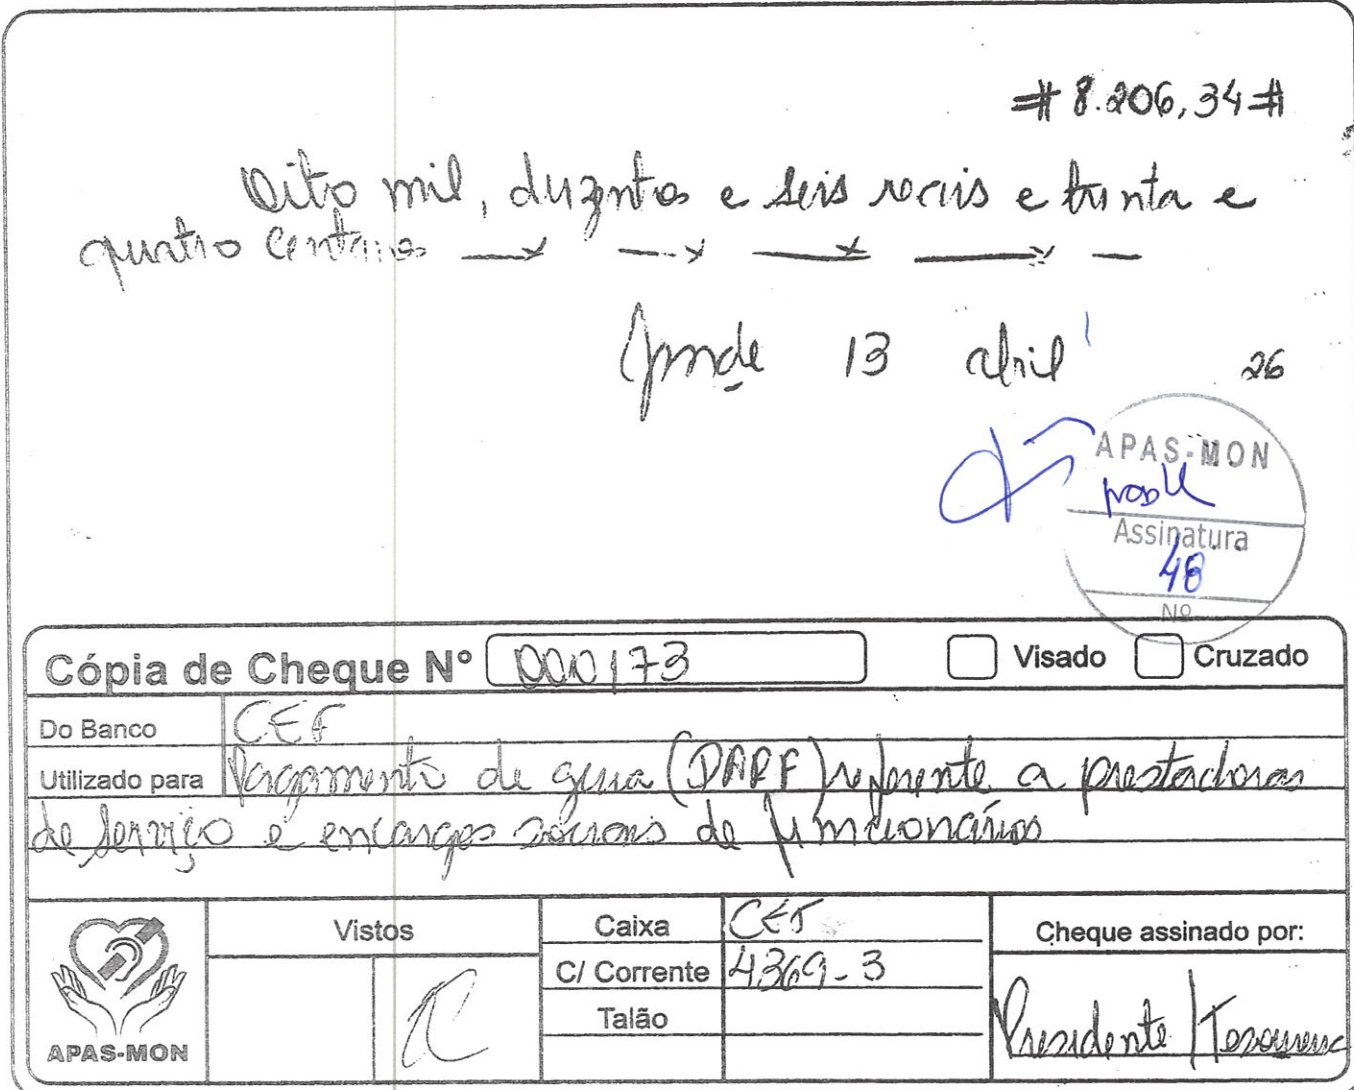 # 8.206,34 #
Oito mil, duzentos e seis reais e trinta e
quatro centavos
13 abril 26
APAS-MON
Assinatura
48
Nº
Cópia de Cheque Nº 000173 Visado Cruzado
Do Banco CEF
Utilizado para Pagamento de guia (DARF) referente a prestadoras
de serviço e encargos sociais de funcionários
Vistos Caixa CEF Cheque assinado por:
C/ Corrente 4369-3
Talão
APAS-MON Presidente / Tesoureira